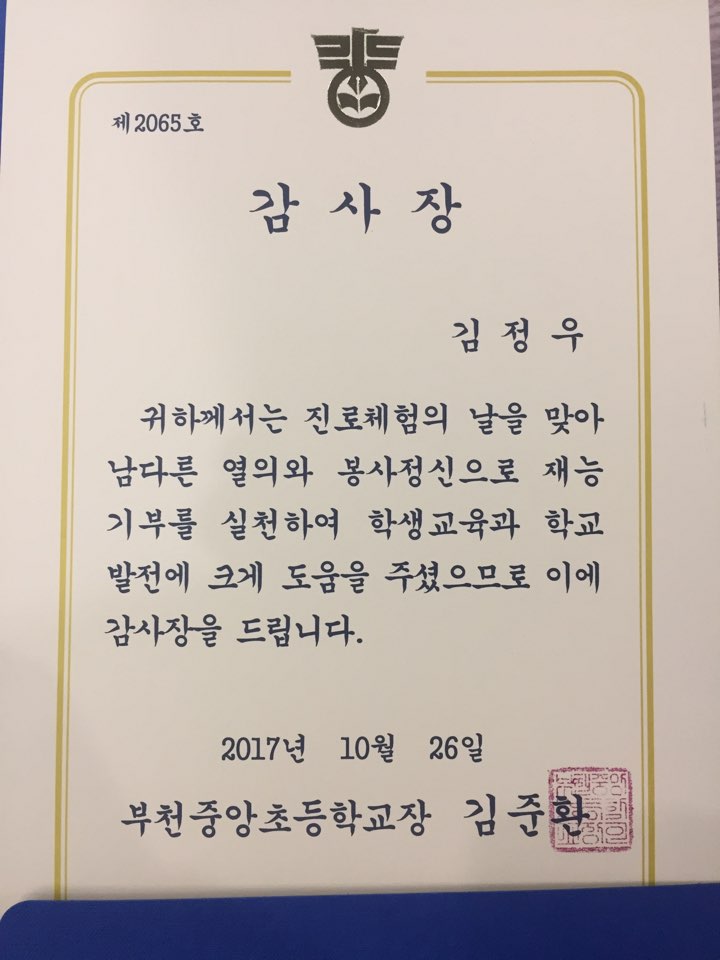 제2065호
감 사 장
김 정 우
귀하께서는 진로체험의 날을 맞아
남다른 열의와 봉사정신으로 재능
기부를 실천하여 학생교육과 학교
발전에 크게 도움을 주셨으므로 이에
감사장을 드립니다.
2017년 10월 26일
부천중앙초등학교장 김준환